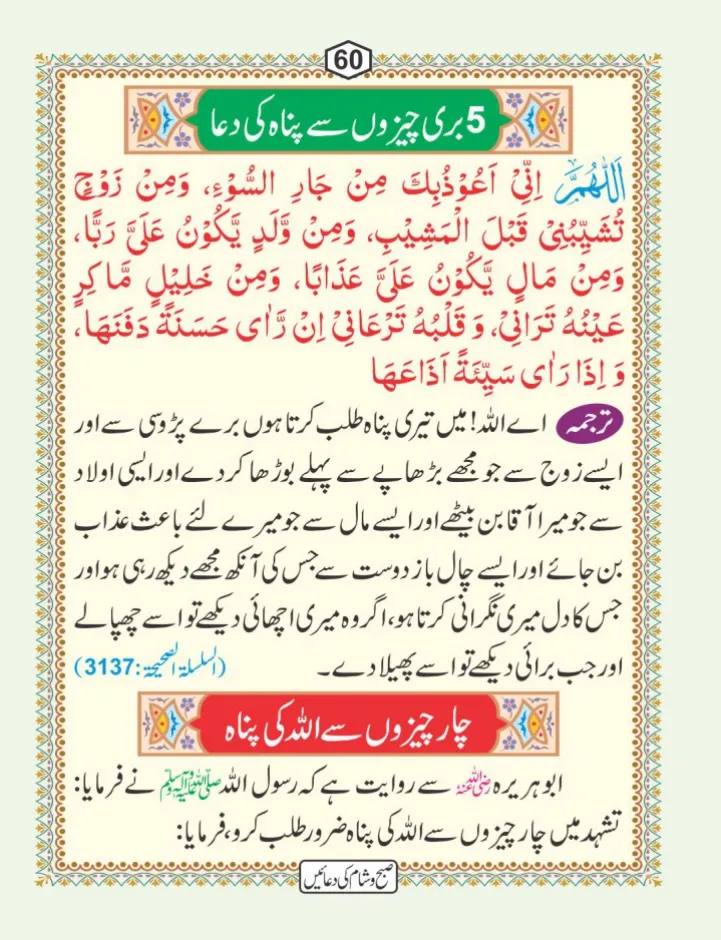 60
5 بری چیزوں سے پناہ کی دعا
اَللّٰهُمَّ اِنِّیْ اَعُوْذُبِكَ مِنْ جَارِ السُّوْءِ، وَمِنْ زَوْجٍ
تُشَیِّبُنِیْ قَبْلَ الْمَشِیْبِ، وَمِنْ وَّلَدٍ یَّكُوْنُ عَلَیَّ رَبًّا،
وَمِنْ مَالٍ یَّكُوْنُ عَلَیَّ عَذَابًا، وَمِنْ خَلِیْلٍ مَّاكِرٍ
عَیْنُهُ تَرَانِیْ، وَ قَلْبُهُ تَرْعَانِیْ اِنْ رَّاٰی حَسَنَةً دَفَنَهَا،
وَ اِذَا رَاٰی سَیِّئَةً اَذَاعَهَا
ترجمہ اے اللہ! میں تیری پناہ طلب کرتا ہوں برے پڑوسی سے اور
ایسے زوج سے جو مجھے بڑھاپے سے پہلے بوڑھا کر دے اور ایسی اولاد
سے جو میرا آقا بن بیٹھے اور ایسے مال سے جو میرے لئے باعث عذاب
بن جائے اور ایسے چال باز دوست سے جس کی آنکھ مجھے دیکھ رہی ہو اور
جس کا دل میری نگرانی کرتا ہو، اگر وہ میری اچھائی دیکھے تو اسے چھپا لے
اور جب برائی دیکھے تو اسے پھیلا دے۔ (السلسلة الصحيحة: 3137)
چار چیزوں سے اللہ کی پناہ
ابو ہریرہ رضی اللہ عنہ سے روایت ہے کہ رسول اللہ صلی اللہ علیہ وآلہ وسلم نے فرمایا:
تشہد میں چار چیزوں سے اللہ کی پناہ ضرور طلب کرو، فرمایا:
صبح و شام کی دعائیں